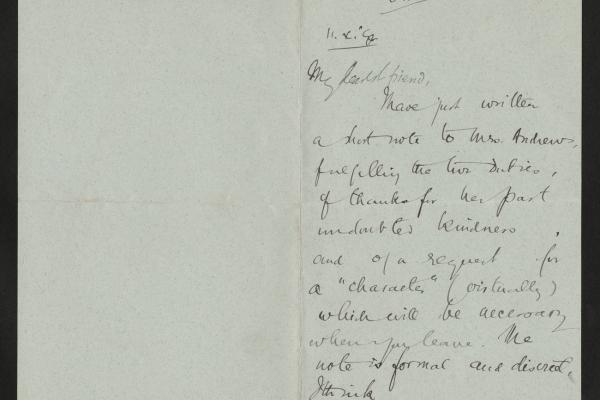 My dearest friend,
I have just written
a short note to Mrs. Andrews,
fulfilling the two duties,
of thanks for her past
undoubted kindness,
and of a request for
a "character" (virtually)
which will be necessary
when you leave. The
note is formal and discreet,
I think